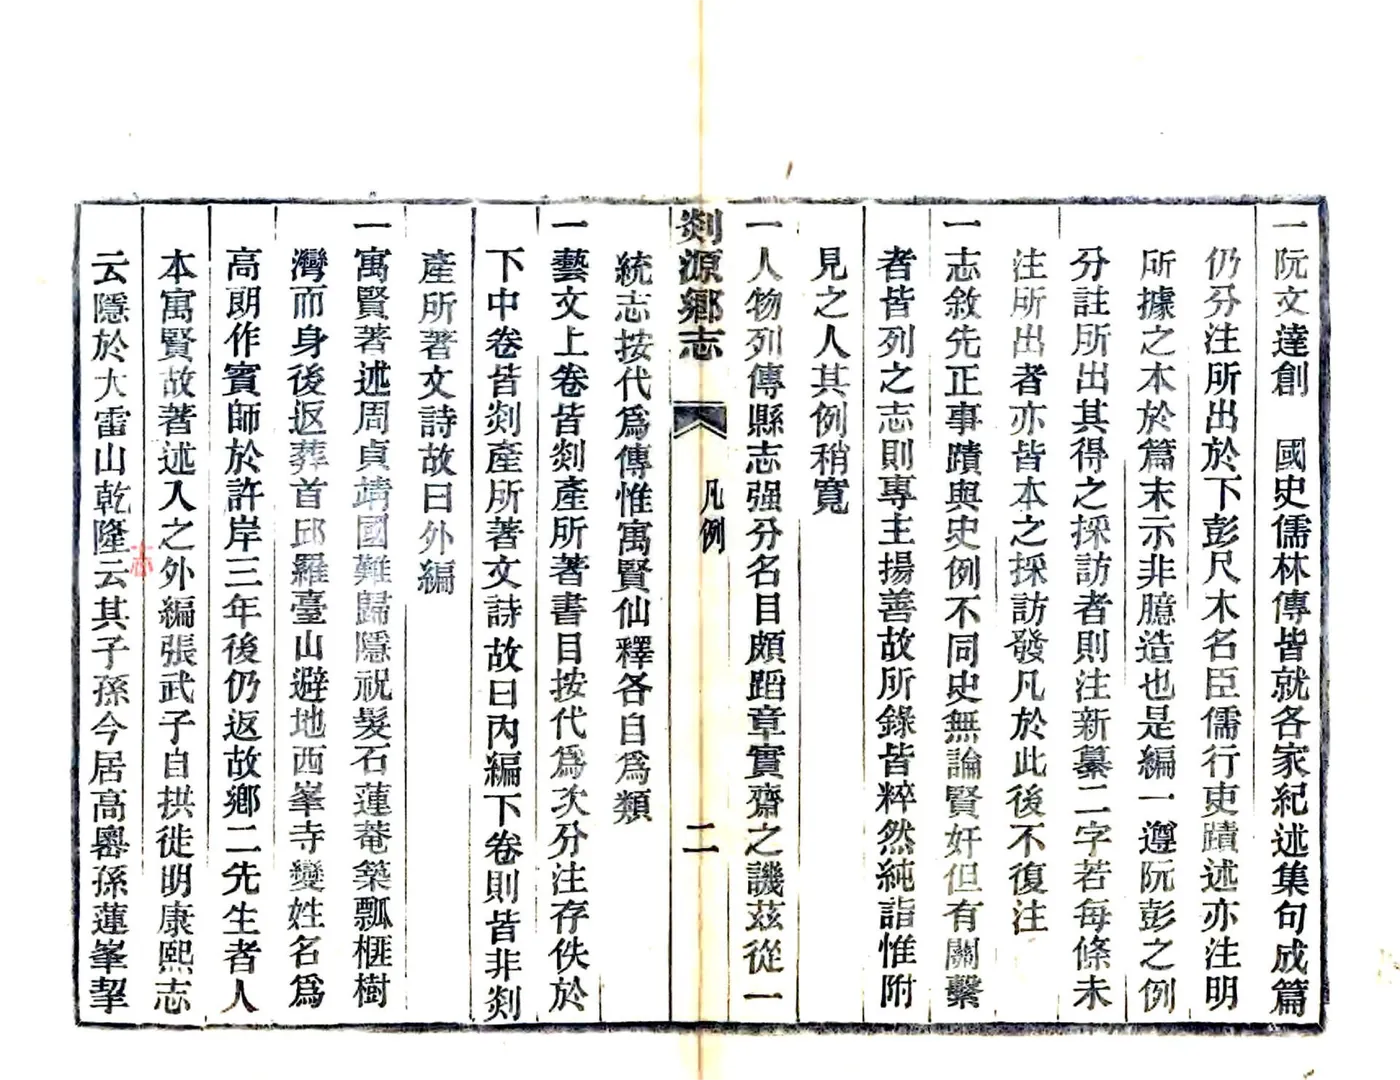 一阮文達創　國史儒林傳皆就各家紀述集句成篇
仍分注所出於下彭尺木名臣儒行吏蹟述亦注明
所據之本於篇末示非臆造也是編一遵阮彭之例
分註所出其得之採訪者則注新纂二字若每條未
注所出者亦皆本之採訪發凡於此後不復注
一志敘先正事蹟與史例不同史無論賢奸但有關繫
者皆列之志則專主揚善故所錄皆粹然純詣惟附
見之人其例稍寬
一人物列傳縣志强分名目頗蹈章實齋之譏茲從一
剡源鄉志
凡例
二
統志按代爲傳惟寓賢仙釋各自爲類
一藝文上卷皆剡產所著書目按代爲次分注存佚於
下中卷皆剡產所著文詩故曰內編下卷則皆非剡
產所著文詩故曰外編
一寓賢著述周貞靖國難歸隱祝髮石蓮菴築瓢榧樹
灣而身後返葬首邱羅臺山避地西峯寺變姓名爲
高朗作賓師於許岸三年後仍返故鄉二先生者人
本寓賢故著述入之外編張武子自拱徙明康熙志
云隱於大雷山乾隆云其子孫今居高嶴孫蓮峯挈
志